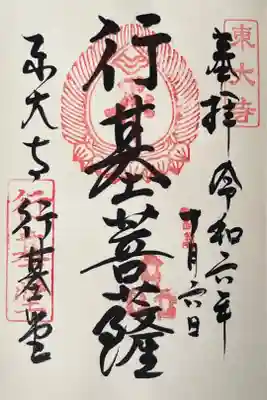 東大寺
奉拝 令和六年
十月六日
行基菩薩
東大寺 行基堂